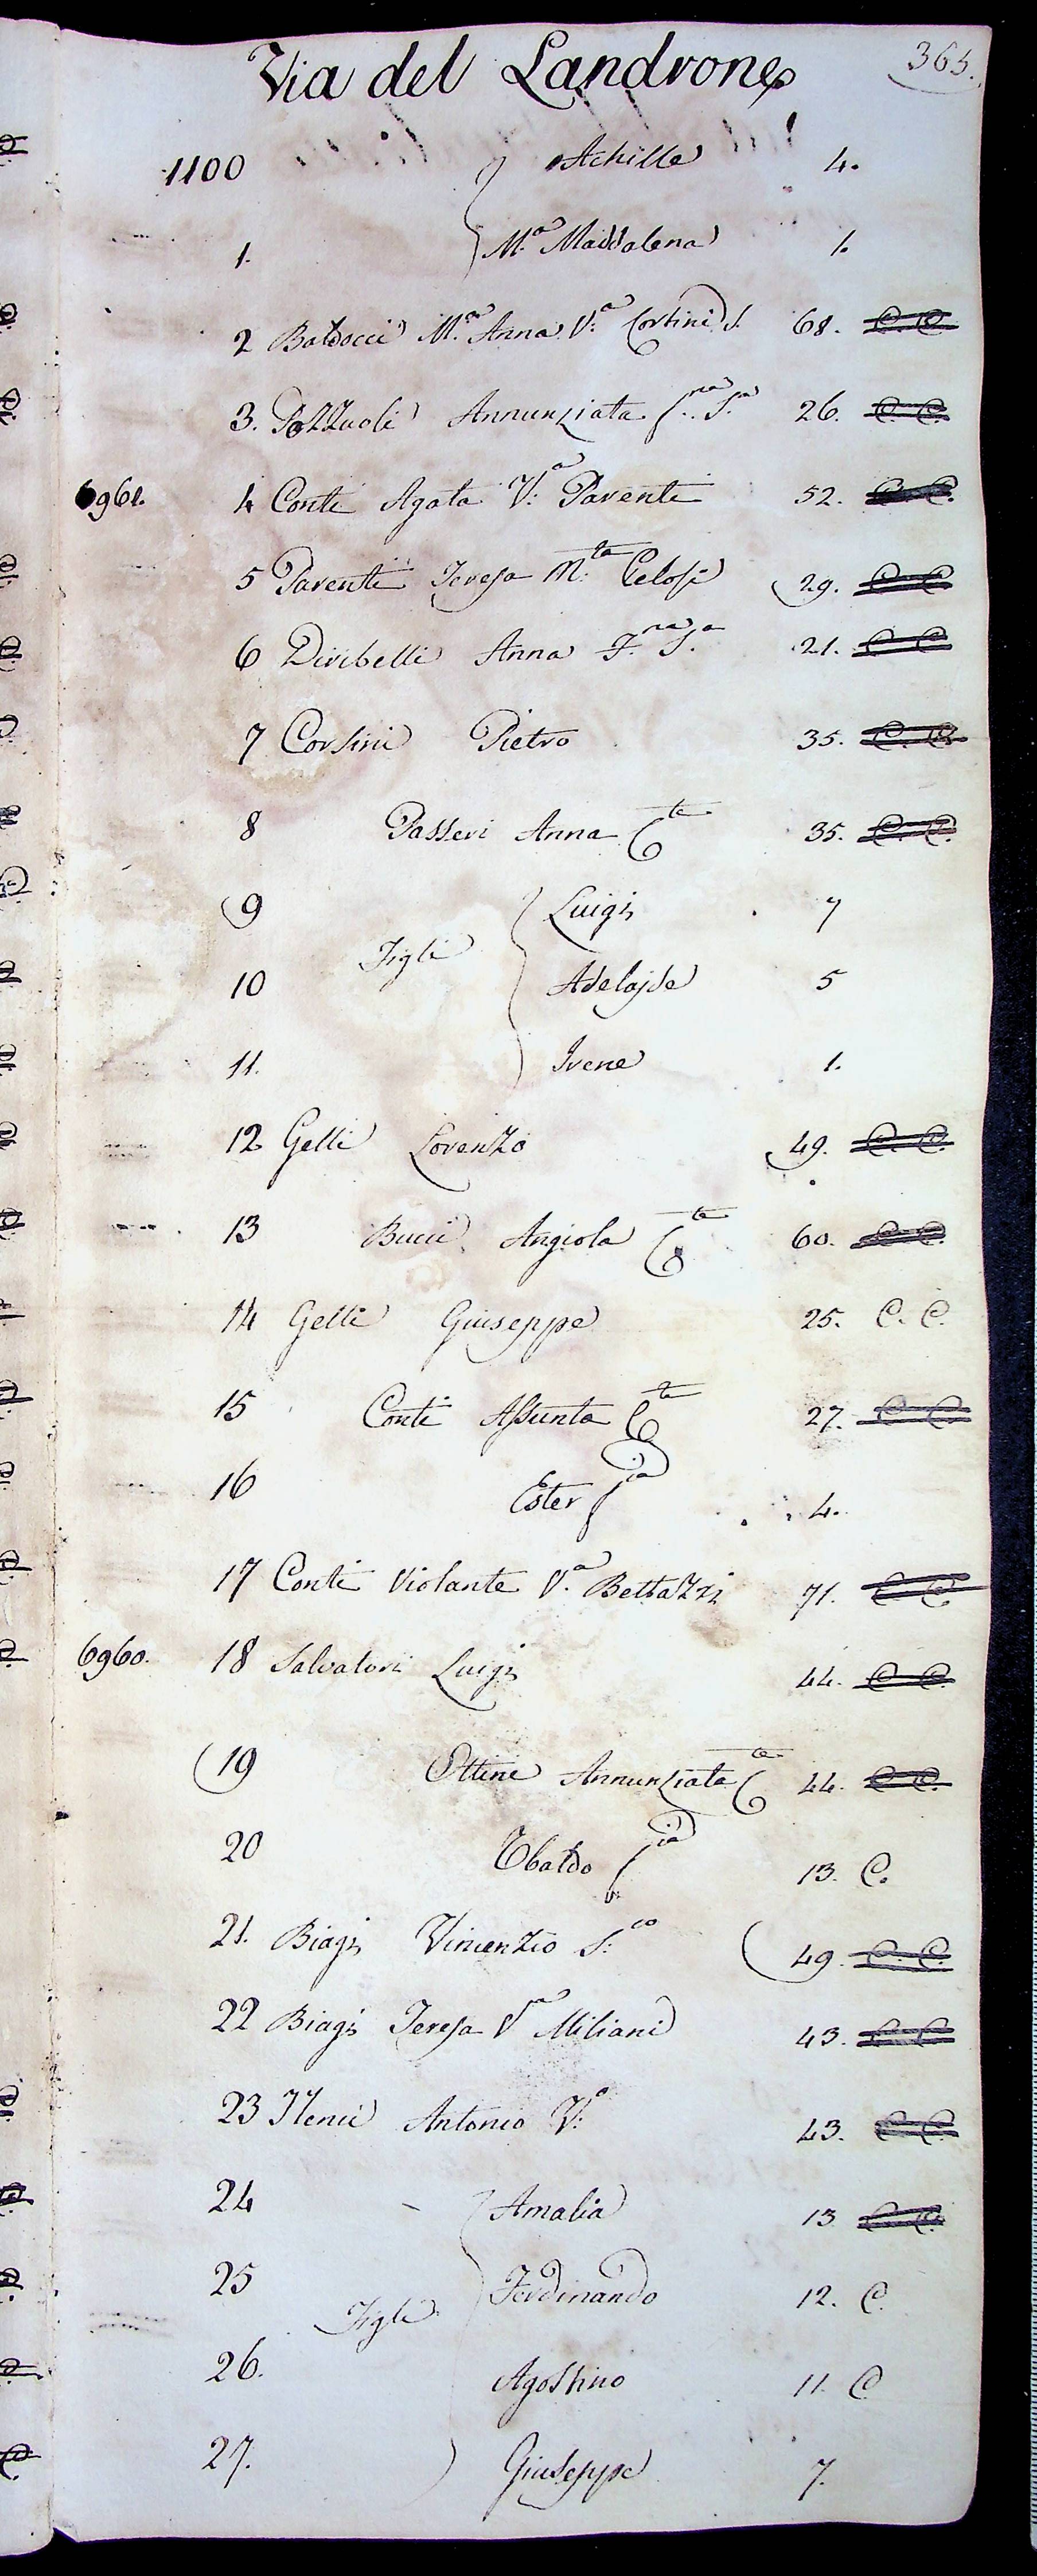 Via del Landrone 365.
1100 Achille 4.
1. M.a Maddalena 1.
2 Baldocci M.a Anna V.a Corsini S. 68. C. C.
3. Pozzuoli Annunziata S.a 26. C. C.
6961. 4 Conti Agata V.a Parenti 52. C. C.
5 Parenti Teresa M.ta Celosi 29. C. C.
6 Diribelli Anna F.na S.a 21. C C
7 Corsini Pietro 35. C. C.
8 Passeri Anna C.te 35. C. C.
9 Luigi 7
Figli
10 Adelajde 5
11. Irene 1.
12 Gelli Lorenzo 49. C. C.
13 Bucci Angiola C.te 60. C. C.
14 Gelli Giuseppe 25. C. C.
15 Conti Assunta C.te 27. C C
16 Ester f.ia 4.
17 Conti Violante V.a Bettazzi 71. C C.
6960. 18 Salvatori Luigi 44. C C.
19 Ottine Annunziata C.te 44. C C.
20 Ubaldo f.io 13. C.
21. Biagi Vincenzio S.co 49. C. C.
22 Biagi Teresa V.a Miliani 43. C C
23 Nenci Antonio V.o 43. C C.
24 Amalia 13 C C.
25 Ferdinando 12. C.
Figli
26. Agostino 11. C
27. Giuseppe 7.